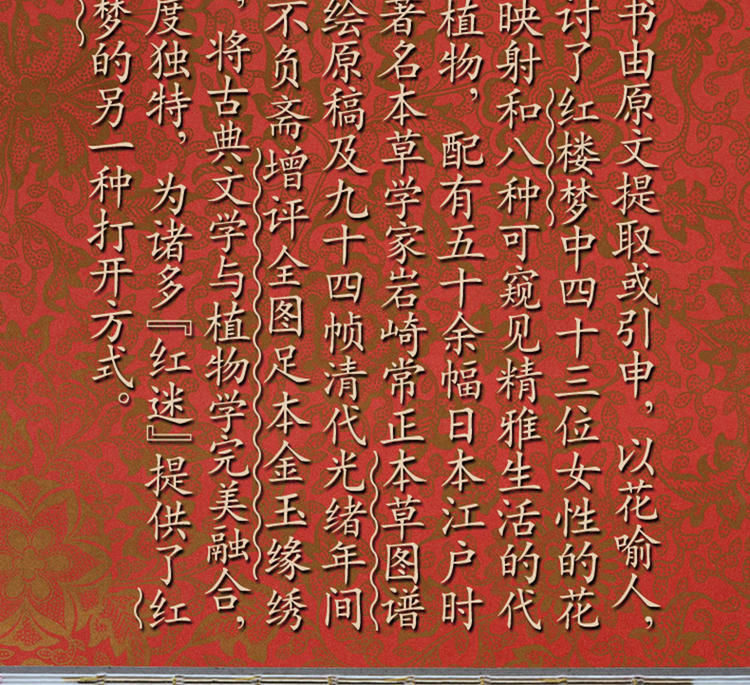 书由原文提取或引申，以花喻人，
讨了红楼梦中四十三位女性的花
映射和八种可窥见精雅生活的代
植物，配有五十余幅日本江户时
著名本草学家岩崎常正本草图谱
绘原稿及九十四帧清代光绪年间
不负斋增评全图足本金玉缘绣
，将古典文学与植物学完美融合，
度独特，为诸多『红迷』提供了红
梦的另一种打开方式。